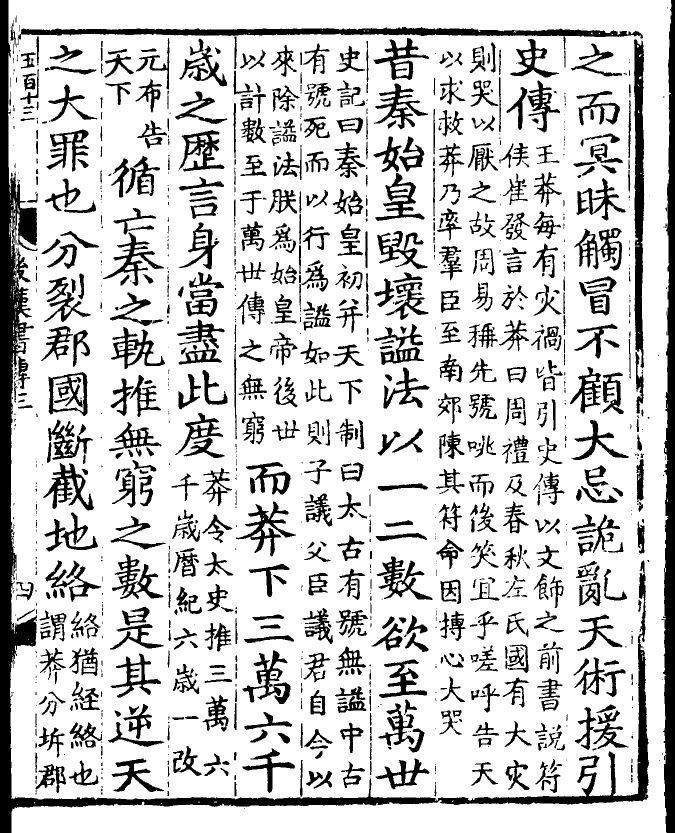 之而冥昧觸冒不顧大忌詭亂天術援引
史傳
王莽每有灾禍皆引史傳以文飾之前書說符
侯崔發言於莽曰周禮及春秋左氏國有大灾
則哭以厭之故周易稱先號咷而後笑宜乎嗟呼告天
以求救莽乃率羣臣至南郊陳其符命因搏心大哭
昔秦始皇毀壞謚法以一二數欲至萬世
史記曰秦始皇初并天下制曰太古有號無謚中古
有號死而以行爲謚如此則子議父臣議君自今以
來除謚法朕爲始皇帝後世
以計數至于萬世傳之無窮
而莽下三萬六千
歳之歷言身當盡此度
莽令太史推三萬六
千歳曆紀六歳一改
元布告
天下
循亡秦之軌推無窮之數是其逆天
之大罪也分裂郡國斷截地絡
絡猶経絡也
謂莽分坼郡
五百十三
後漢書傳三
四